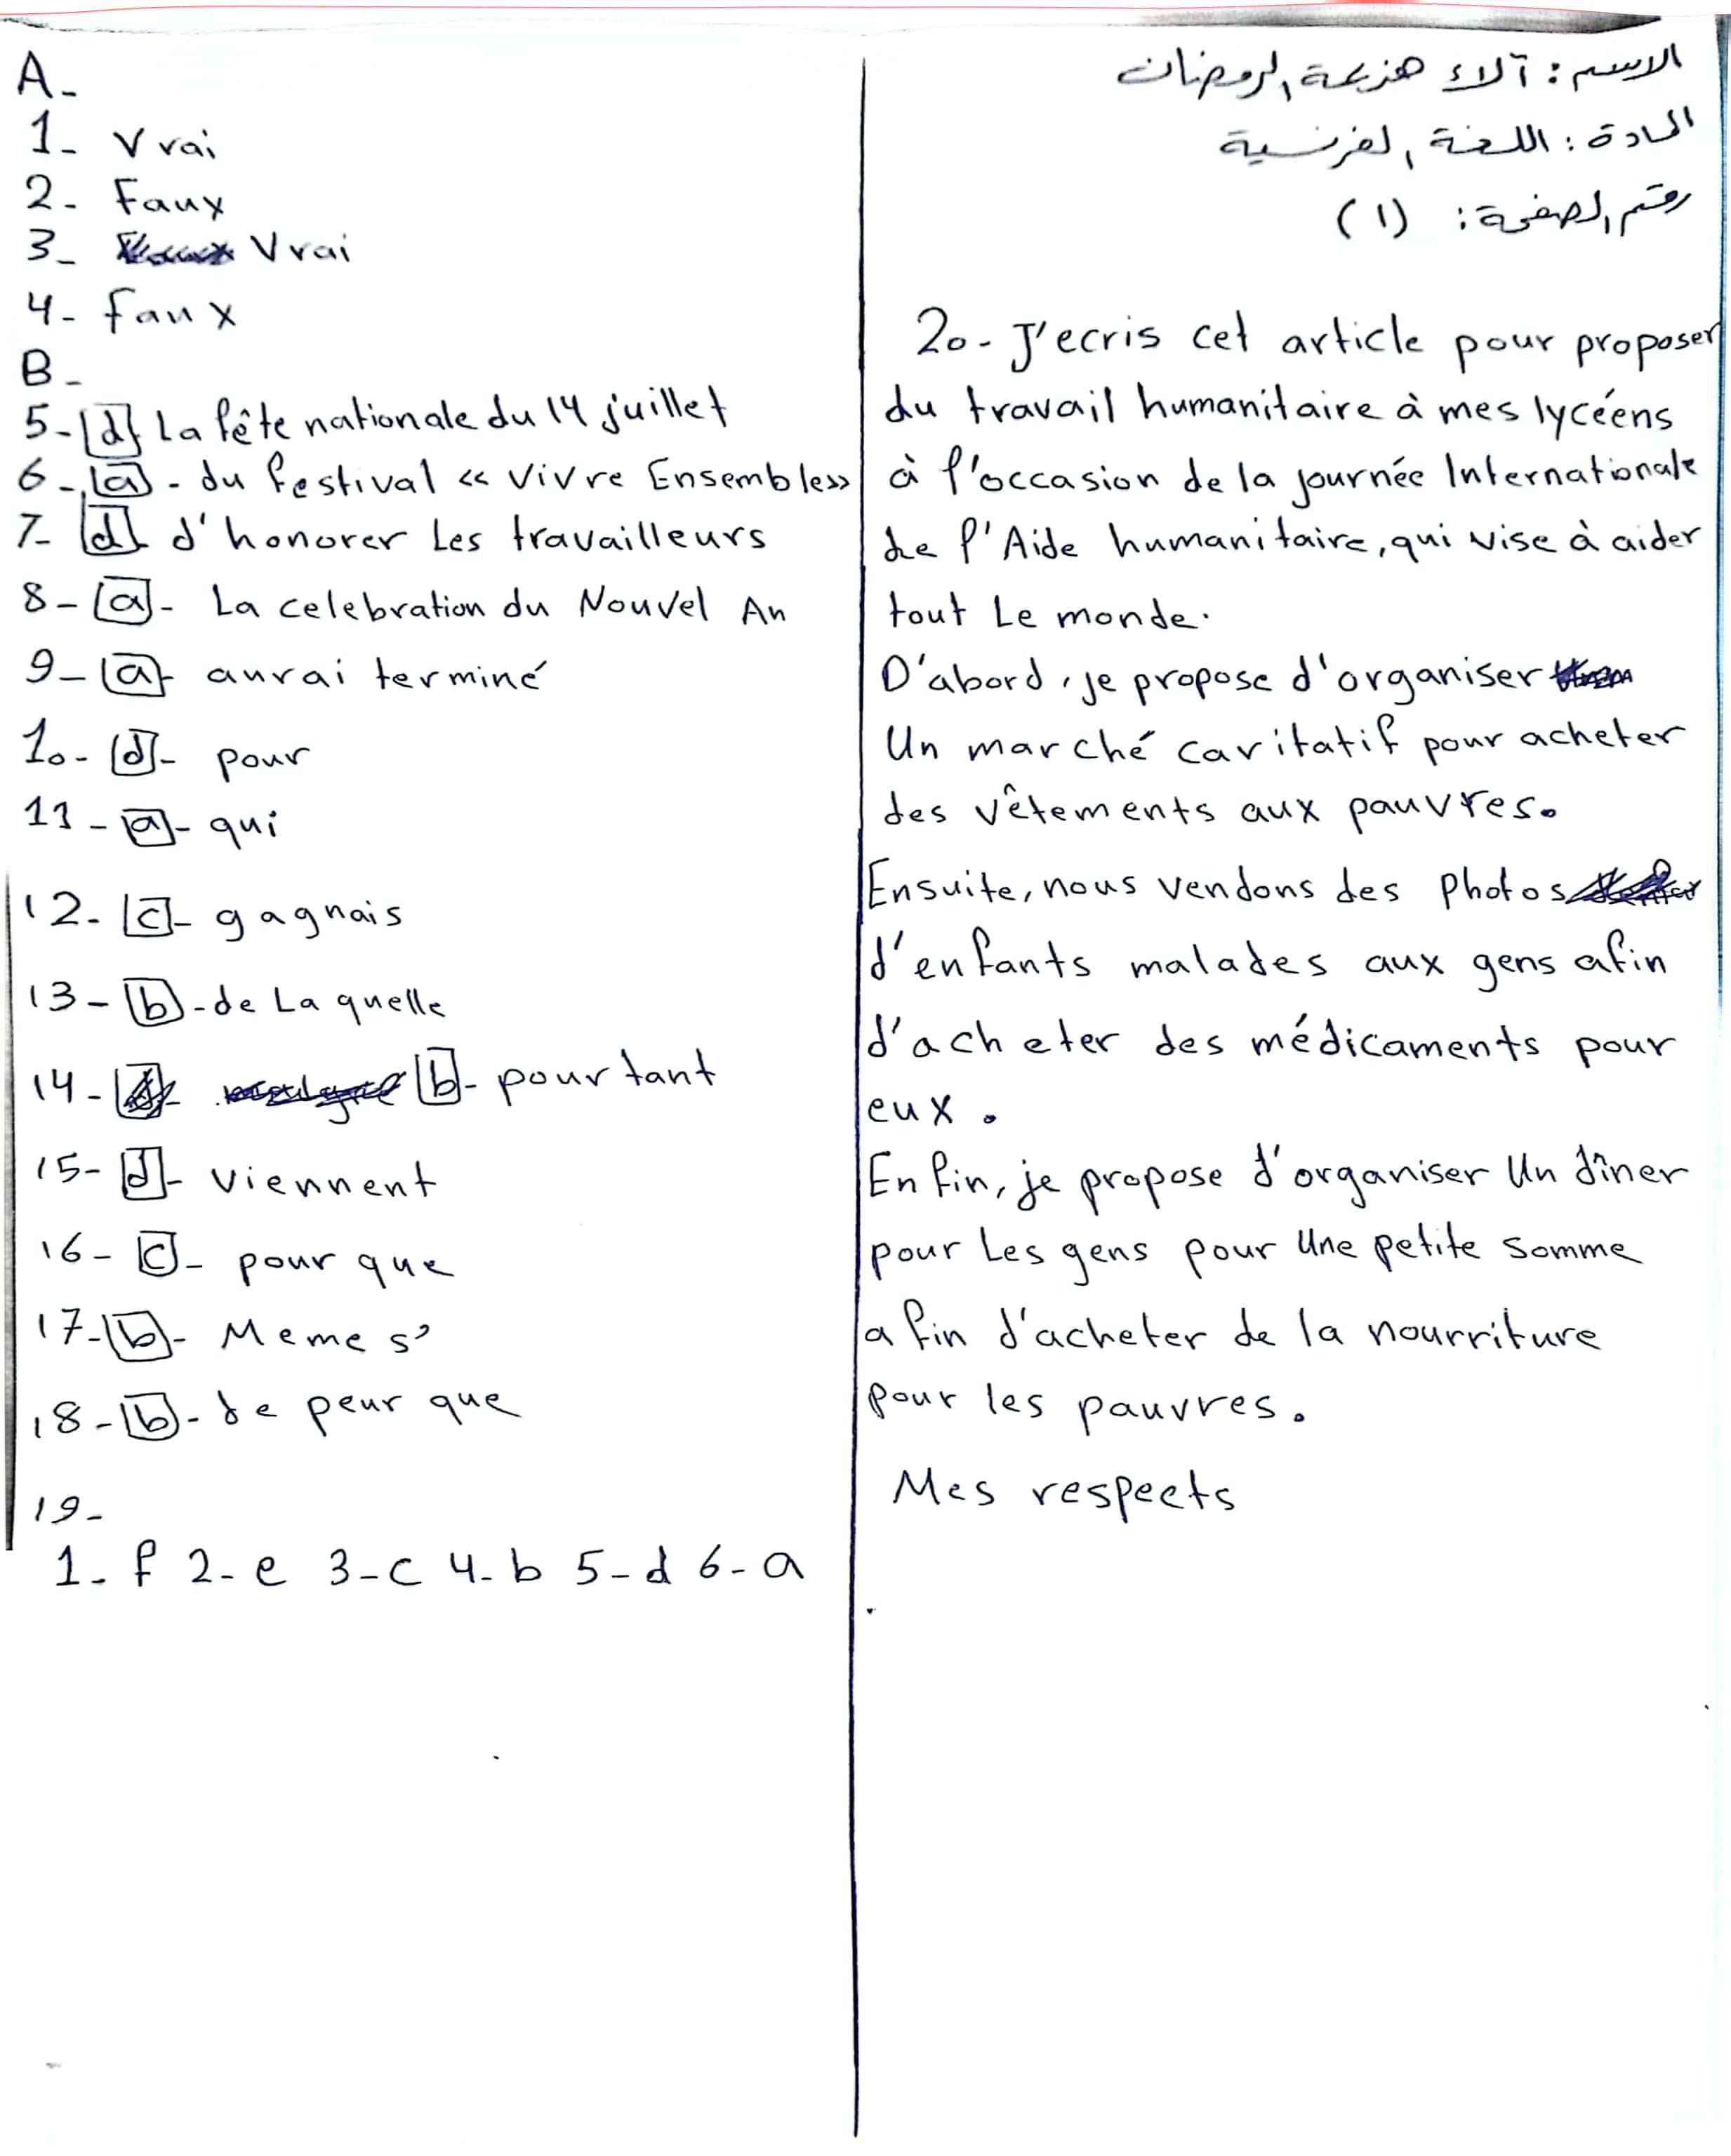 A-
1- Vrai
2- Faux
3- Vrai
4- faux
B-
5- d La fête nationale du 14 juillet
6- a - du festival « vivre Ensemble»
7- d d'honorer Les travailleurs
8- a - La celebration du Nouvel An
9- a - aurai terminé
10- d - pour
11- a - qui
12- c - gagnais
13- b - de La quelle
14- b - pourtant
15- d - viennent
16- c - pour que
17- b - Meme s'
18- b - de peur que
19-
1- f 2- e 3- c 4- b 5- d 6- a
الاسم : آلاء هزيمة الرمضان
المادة : اللغة الفرنسية
رقم الصفحة : (١)
20- J'ecris cet article pour proposer
du travail humanitaire à mes lycéens
à l'occasion de la journée Internationale
de l'Aide humanitaire, qui vise à aider
tout Le monde.
D'abord, je propose d'organiser
Un marché caritatif pour acheter
des vêtements aux pauvres.
Ensuite, nous vendons des photos
d'enfants malades aux gens afin
d'acheter des médicaments pour
eux.
Enfin, je propose d'organiser Un dîner
pour Les gens pour Une petite somme
afin d'acheter de la nourriture
pour les pauvres.
Mes respects